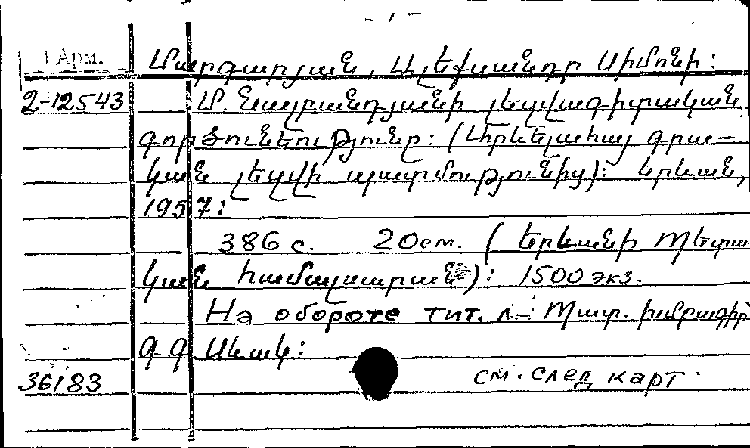 - 1 -
1 Арм.
Մարգարյան, Ալեքսանդր Սիմոնի:
2-12543
Մ. Նալբանդյանի լեզվագիտական
գործունեությունը: (Արևելահայ գրա-
կան լեզվի պատմությունից): Երևան,
1957:
386 с. 20 см. (Երևանի Պետա
կան համալսարան): 1500 экз.
На обороте тит. л.- Պատ. խմբագիր
Գ. Գ. Սևակ:
36183
см. след карт.